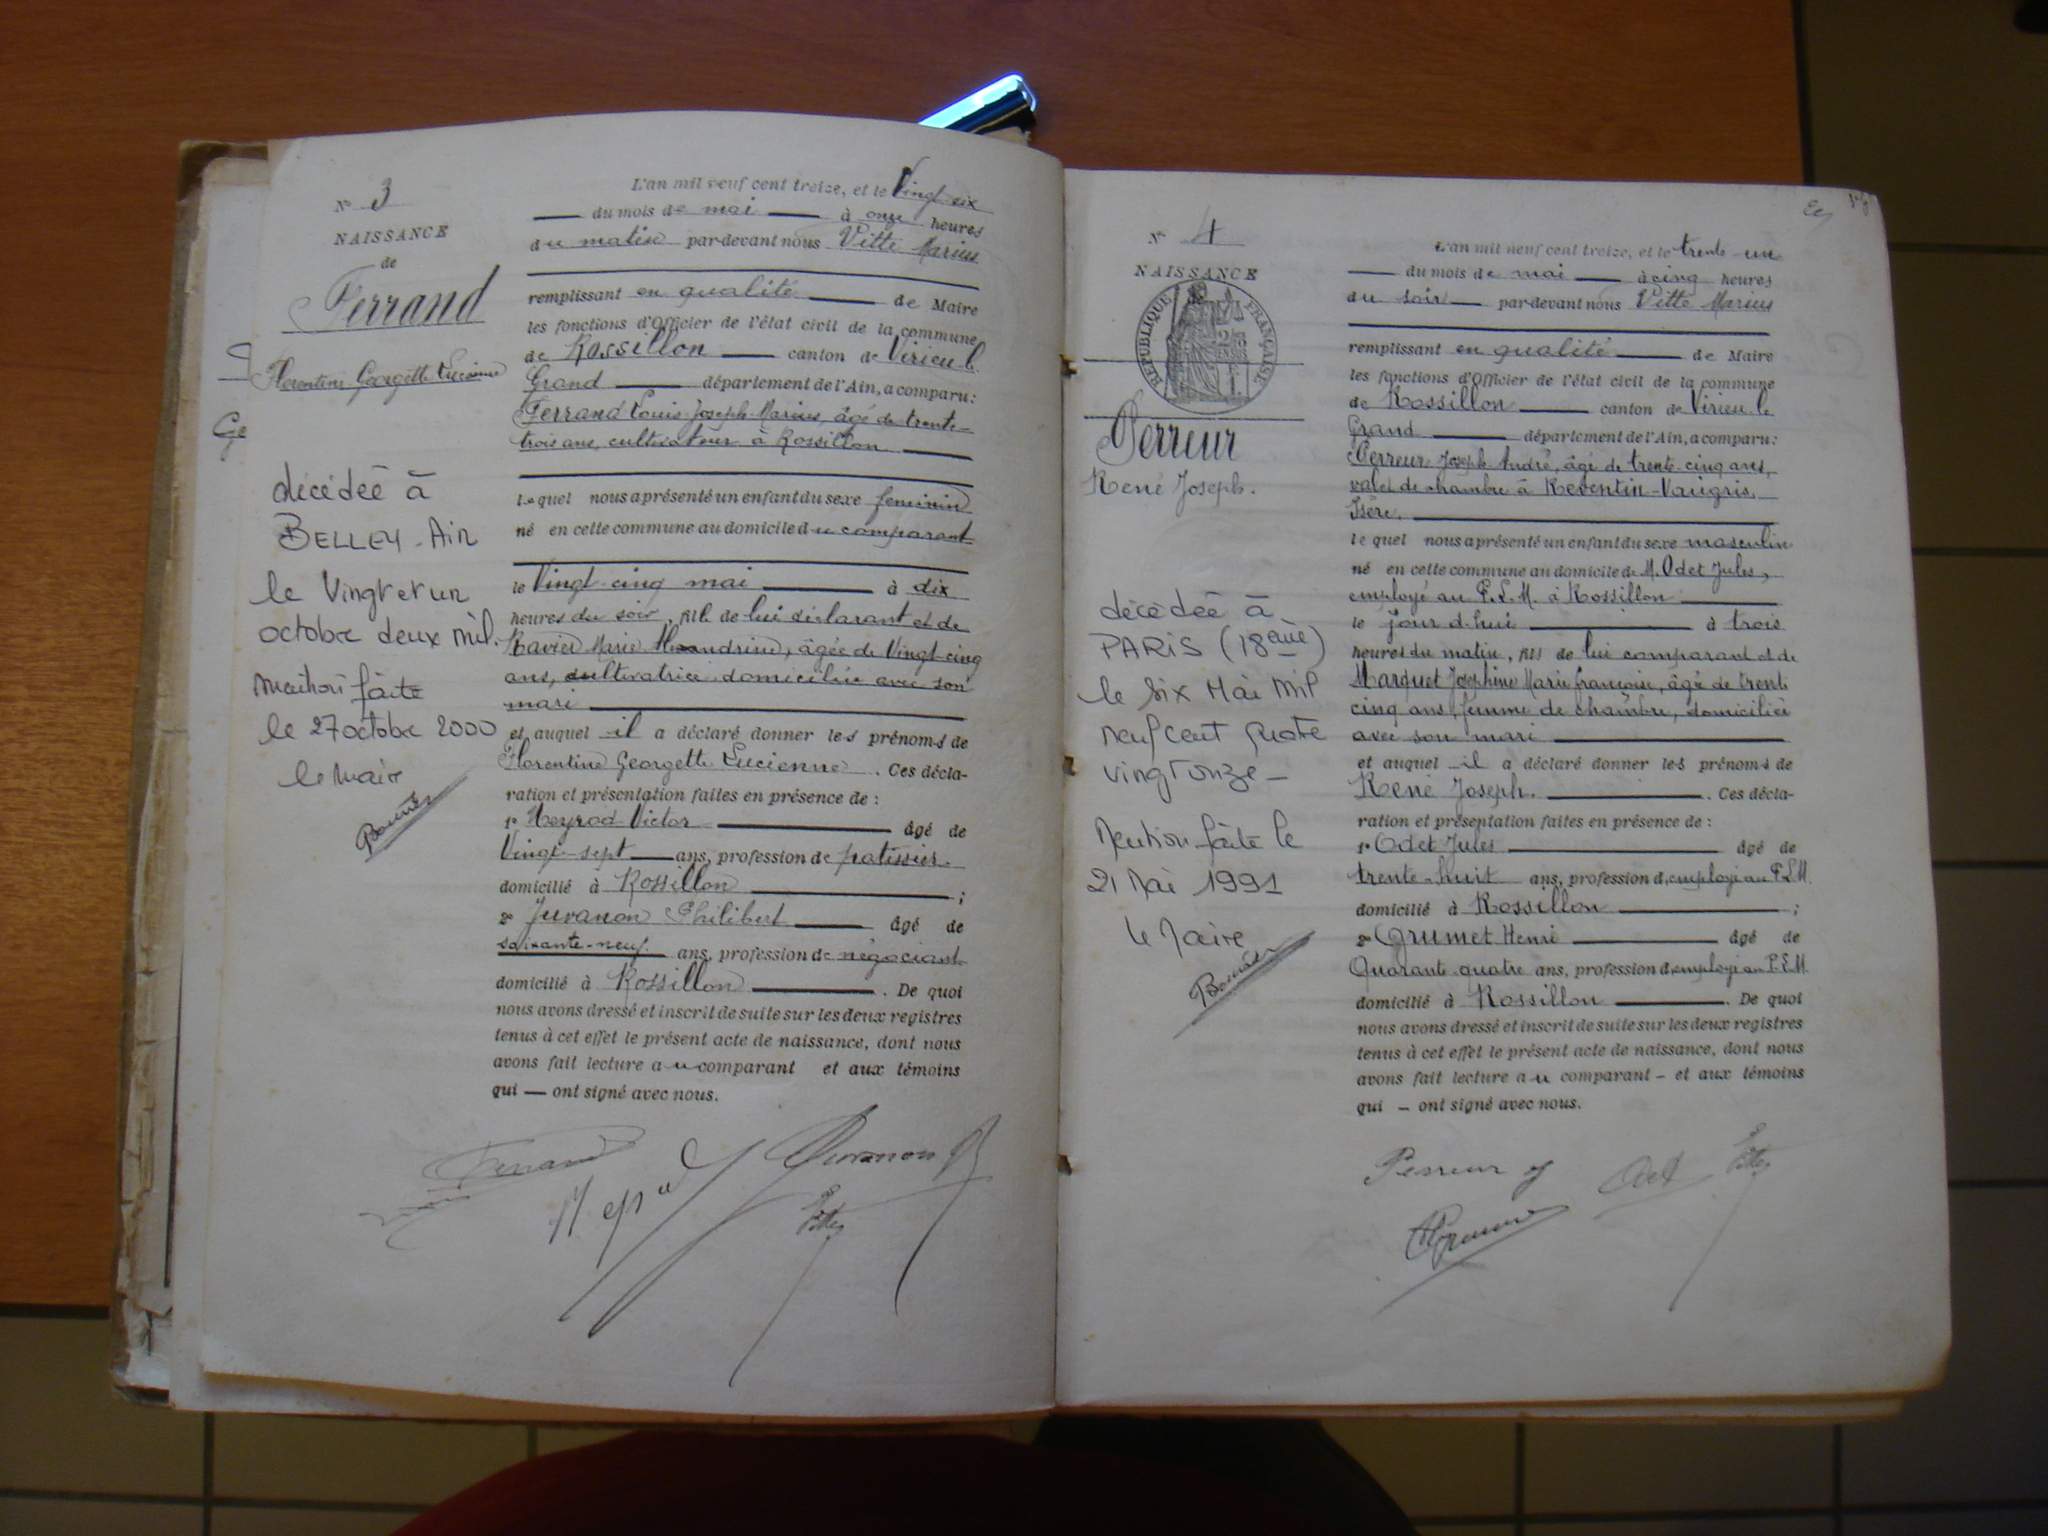 N° 3
NAISSANCE
de
Ferrand
Florentine Georgette Lucienne
décédée à
BELLEY-Ain
le Vingt et un
octobre deux mil.
Mention faite
le 27 octobre 2000
le Maire
L'an mil neuf cent treize, et le Vingt-six
du mois de mai à onze heures
du matin par-devant nous Vitte Marius
remplissant en qualité de Maire
les fonctions d'Officier de l'état civil de la commune
de Rossillon canton de Virieu-le-
Grand département de l'Ain, a comparu:
Ferrand Louis-Joseph-Marius, âgé de trente-
trois ans, cultivateur à Rossillon
lequel nous a présenté un enfant du sexe feminin
né en cette commune au domicile du comparant
le Vingt-cinq mai à dix
heures du soir, fille de lui déclarant et de
Ravier Marie Alexandrine, âgée de Vingt-cinq
ans, cultivatrice domiciliée avec son
mari
et auquel il a déclaré donner les prénoms de
Florentine Georgette Lucienne. Ces décla-
ration et présentation faites en présence de:
1° Meyrod Victor âgé de
Vingt-sept ans, profession de patissier
domicilié à Rossillon;
2° Juvanon Philibert âgé de
soixante-neuf ans, profession de négociant
domicilié à Rossillon. De quoi
nous avons dressé et inscrit de suite sur les deux registres
tenus à cet effet le présent acte de naissance, dont nous
avons fait lecture au comparant et aux témoins
qui — ont signé avec nous.
Ferrand
Juvanon
Vitte
N° 4
NAISSANCE
de
RÉPUBLIQUE FRANÇAISE
Perreur
René Joseph.
décédé à
PARIS (18ème)
le Six Mai Mil
neuf cent quatre
vingt onze -
Mention faite le
21 Mai 1991
le Maire
L'an mil neuf cent treize, et le trente-un
du mois de mai à cinq heures
du soir par-devant nous Vitte Marius
remplissant en qualité de Maire
les fonctions d'Officier de l'état civil de la commune
de Rossillon canton de Virieu-le
Grand département de l'Ain, a comparu:
Perreur Joseph André, âgé de trente-cinq ans,
valet de chambre à Reventin-Vaugris,
Isère.
lequel nous a présenté un enfant du sexe masculin
né en cette commune au domicile de M. Odet Jules,
employé au P.L.M. à Rossillon
le jour d'hui à trois
heures du matin, fils de lui comparant et de
Marquet Joséphine Marie françoise, âgée de trente
cinq ans, femme de chambre, domiciliée
avec son mari
et auquel il a déclaré donner les prénoms de
René Joseph. Ces décla-
ration et présentation faites en présence de:
1° Odet Jules âgé de
trente-huit ans, profession d'employé au P.L.M.
domicilié à Rossillon;
2° Grumet Henri âgé de
Quarante-quatre ans, profession d'employé au P.L.M.
domicilié à Rossillon. De quoi
nous avons dressé et inscrit de suite sur les deux registres
tenus à cet effet le présent acte de naissance, dont nous
avons fait lecture au comparant - et aux témoins
qui - ont signé avec nous.
Perreur J
Odet
Vitte
Grumet